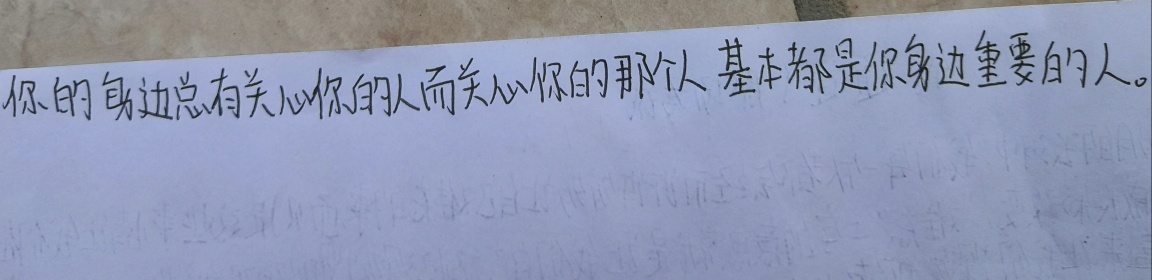 你的身边总有关心你的人而关心你的那个人基本都是你身边重要的人。